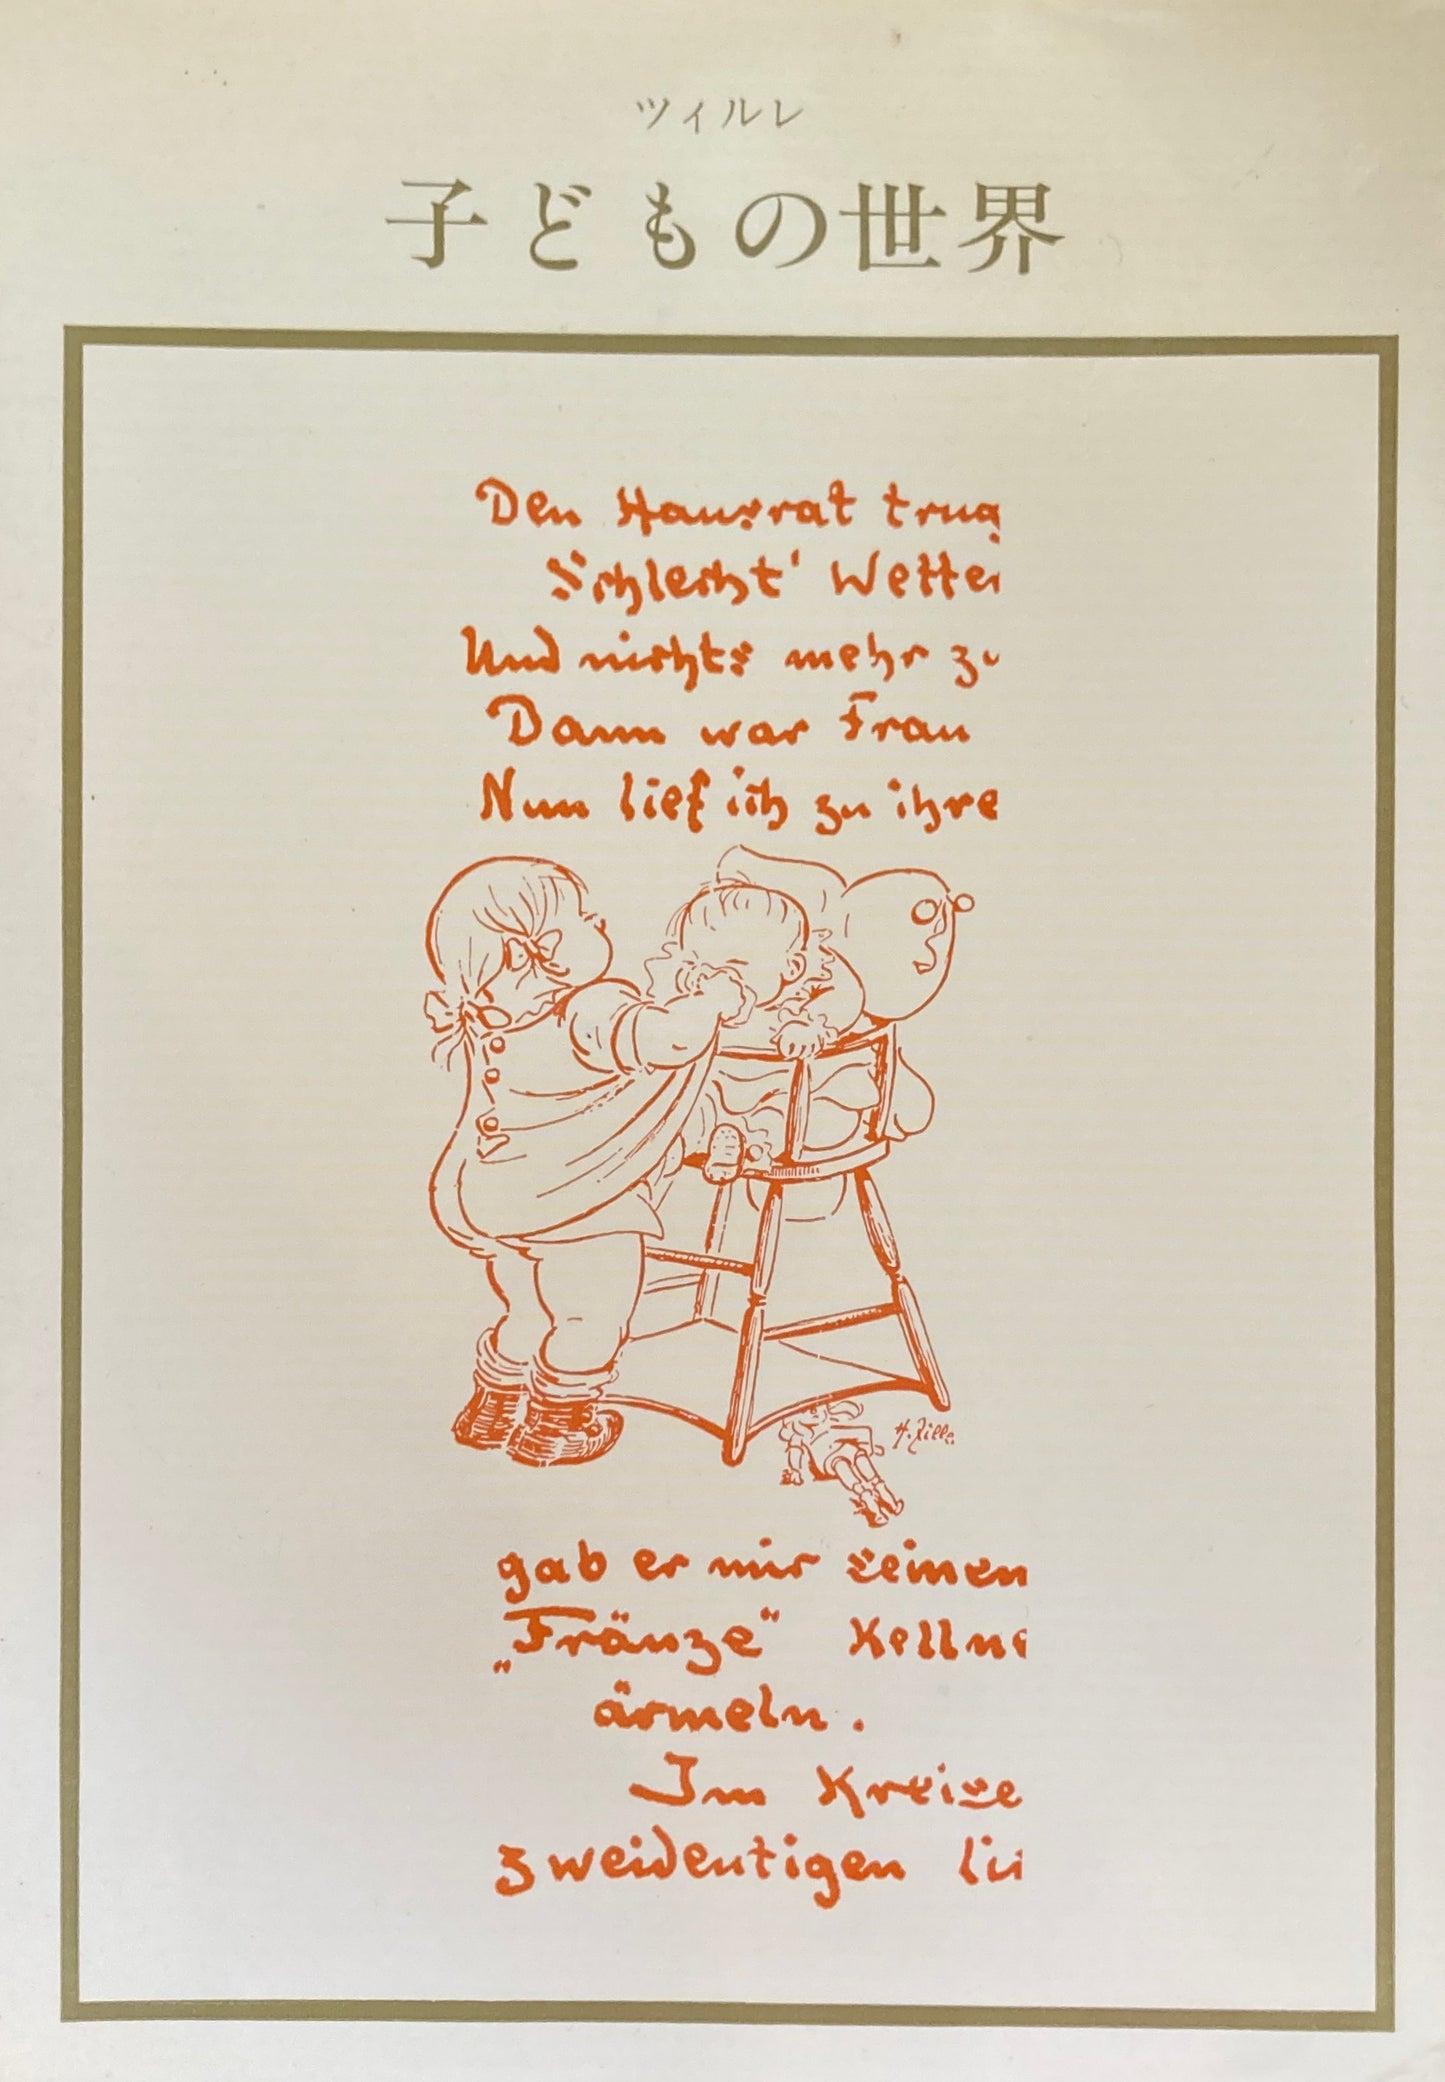 ツィルレ
子どもの世界
Den Hausrat trug
Schleicht' Wetter
Und nichts mehr zu
Dann war Frau
Nun lief ich zu ihre
H. Zille
gab er mir seinen
„Fränze" Kellne
ärmeln.
Im Kreise
zweideutigen